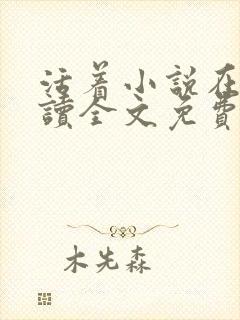 活着小說在
讀全文免費
木先森